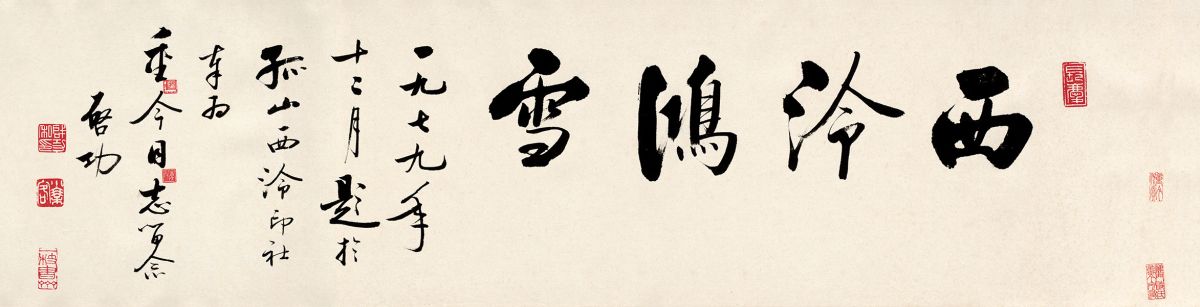 西泠鴻雪
一九七九年
十二月題於
孤山西泠印社
奉为
今同志留念
啓功